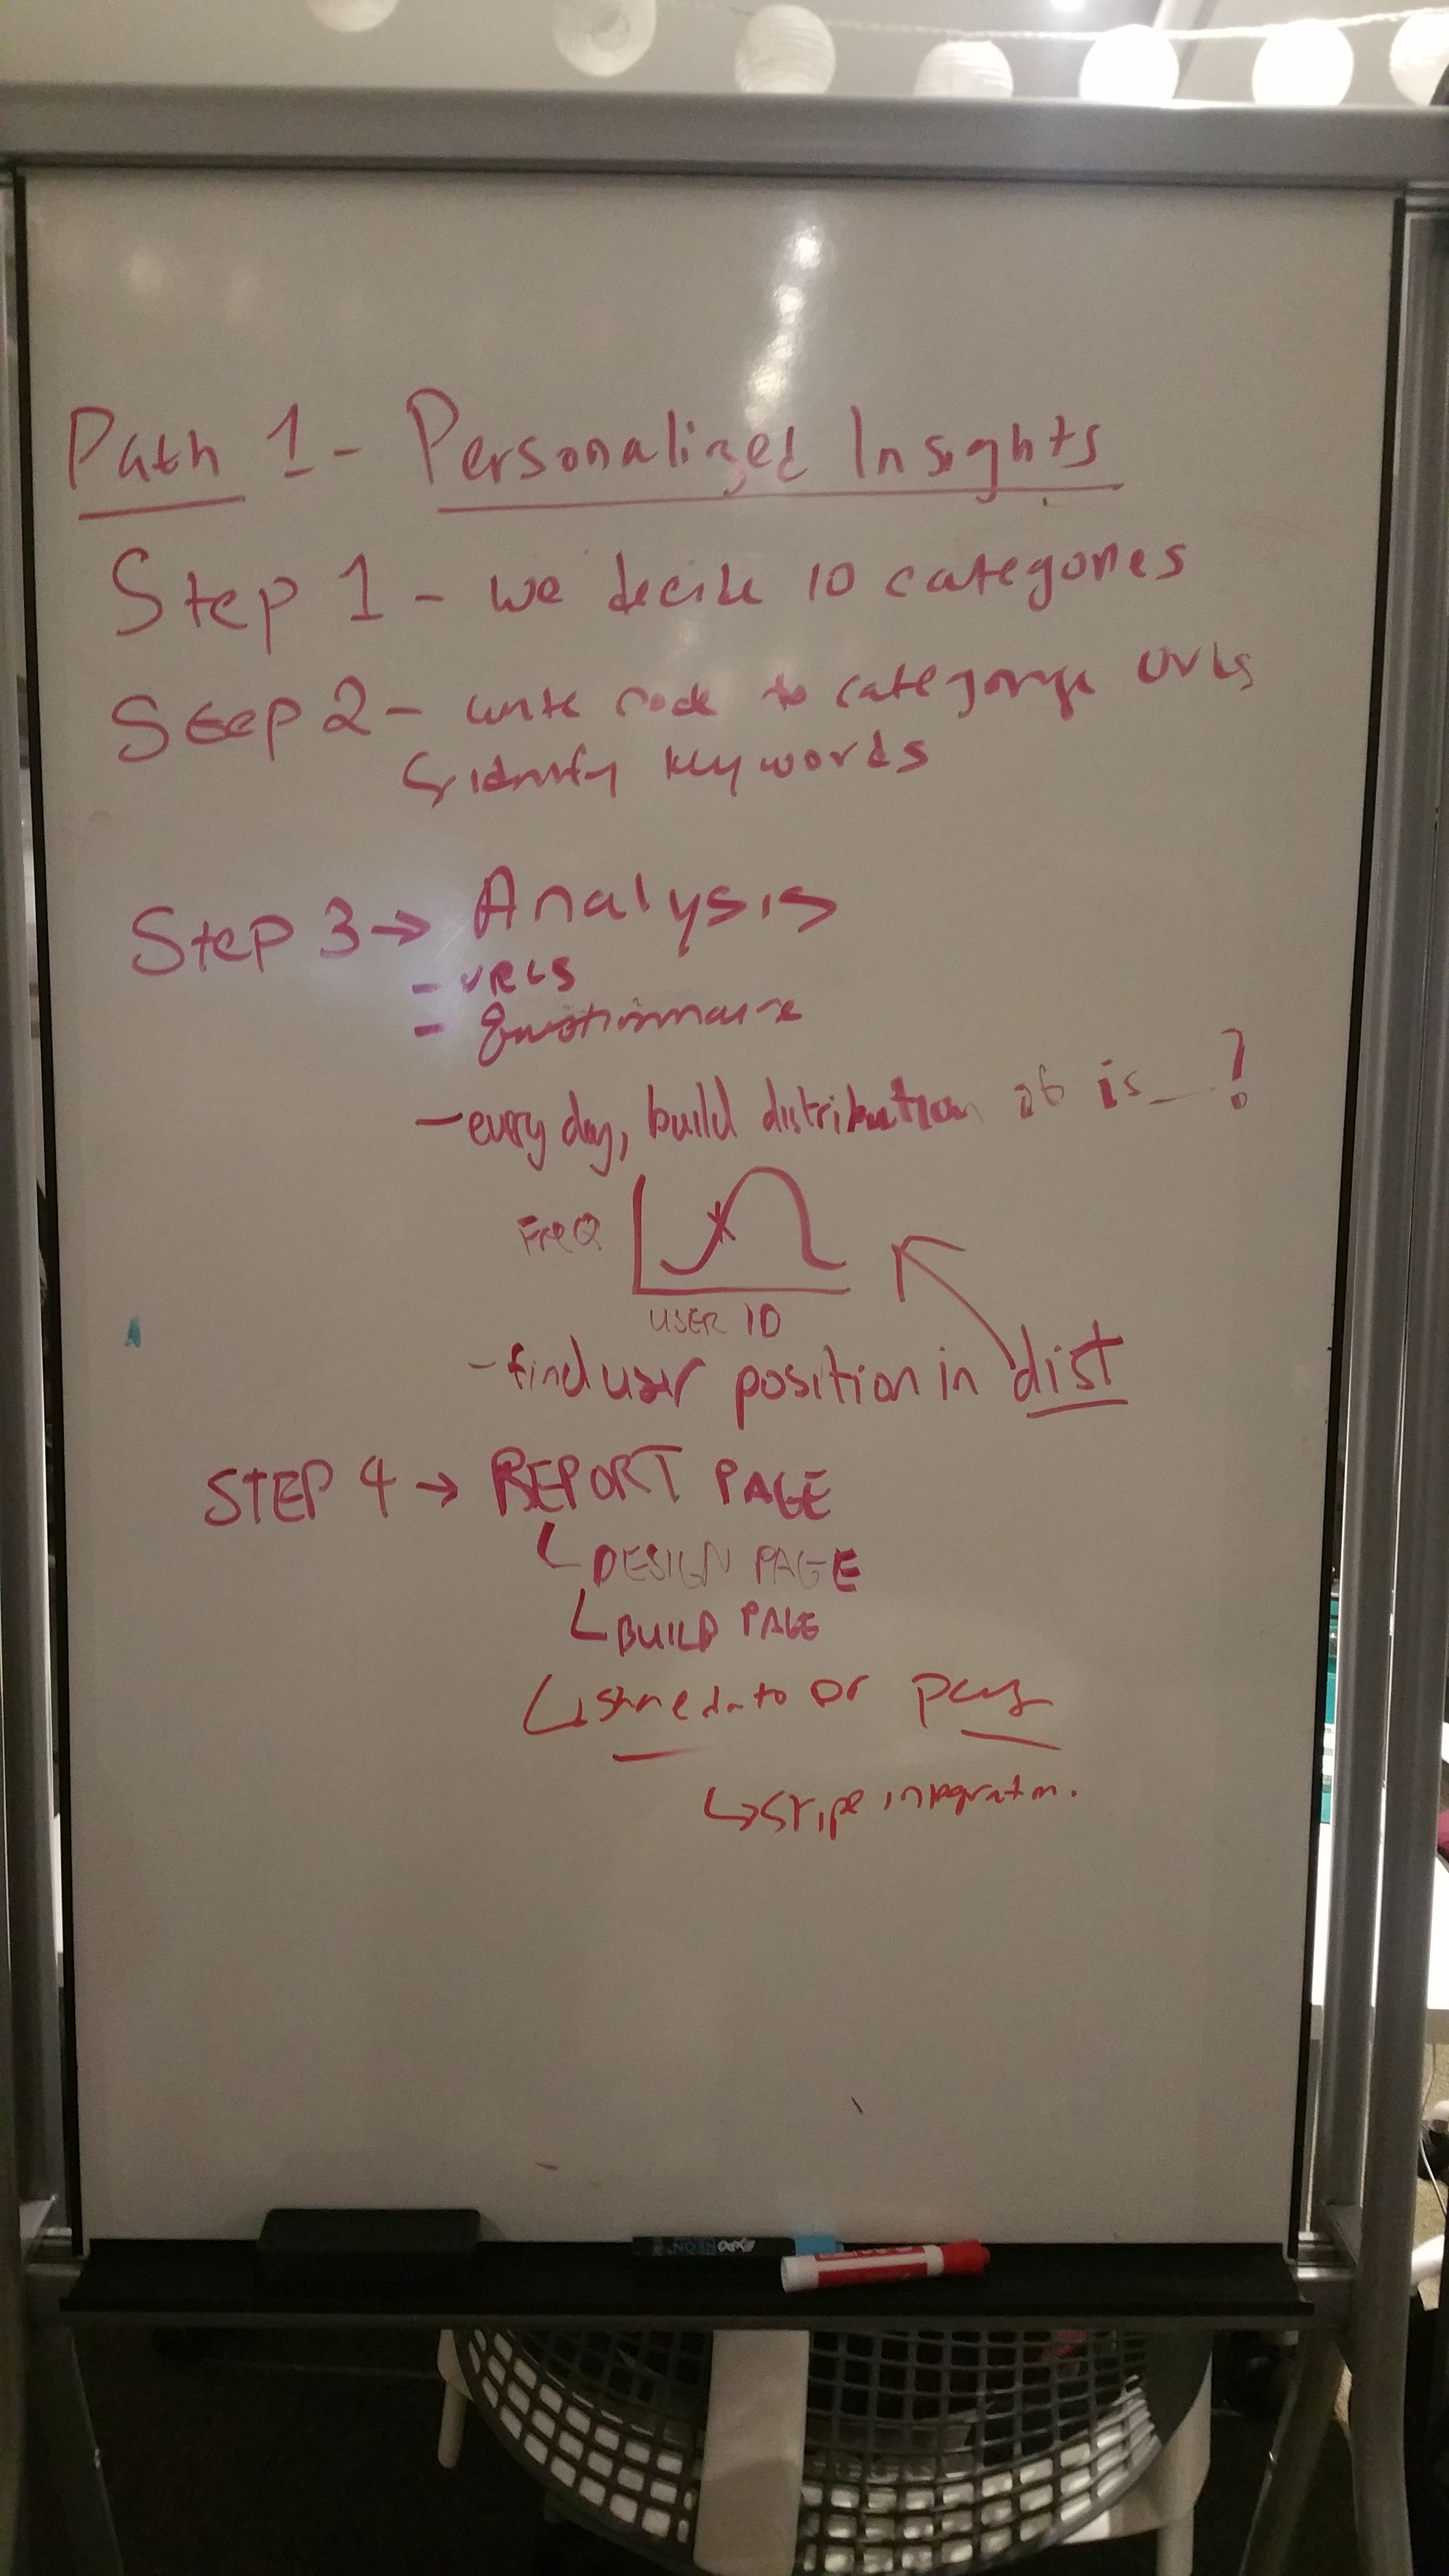 Path 1 - Personalized Insights
Step 1 - we decide 10 categories
Step 2 - write code to categorize URLs
↳ identify keywords
Step 3 → Analysis
- URLS
- Questionnaire
- every day, build distribution of is __?
FREQ
USER ID
- find user position in dist
STEP 4 → REPORT PAGE
DESIGN PAGE
BUILD PAGE
↳ share data or pay
↳ stripe integration.
EXPO NEON